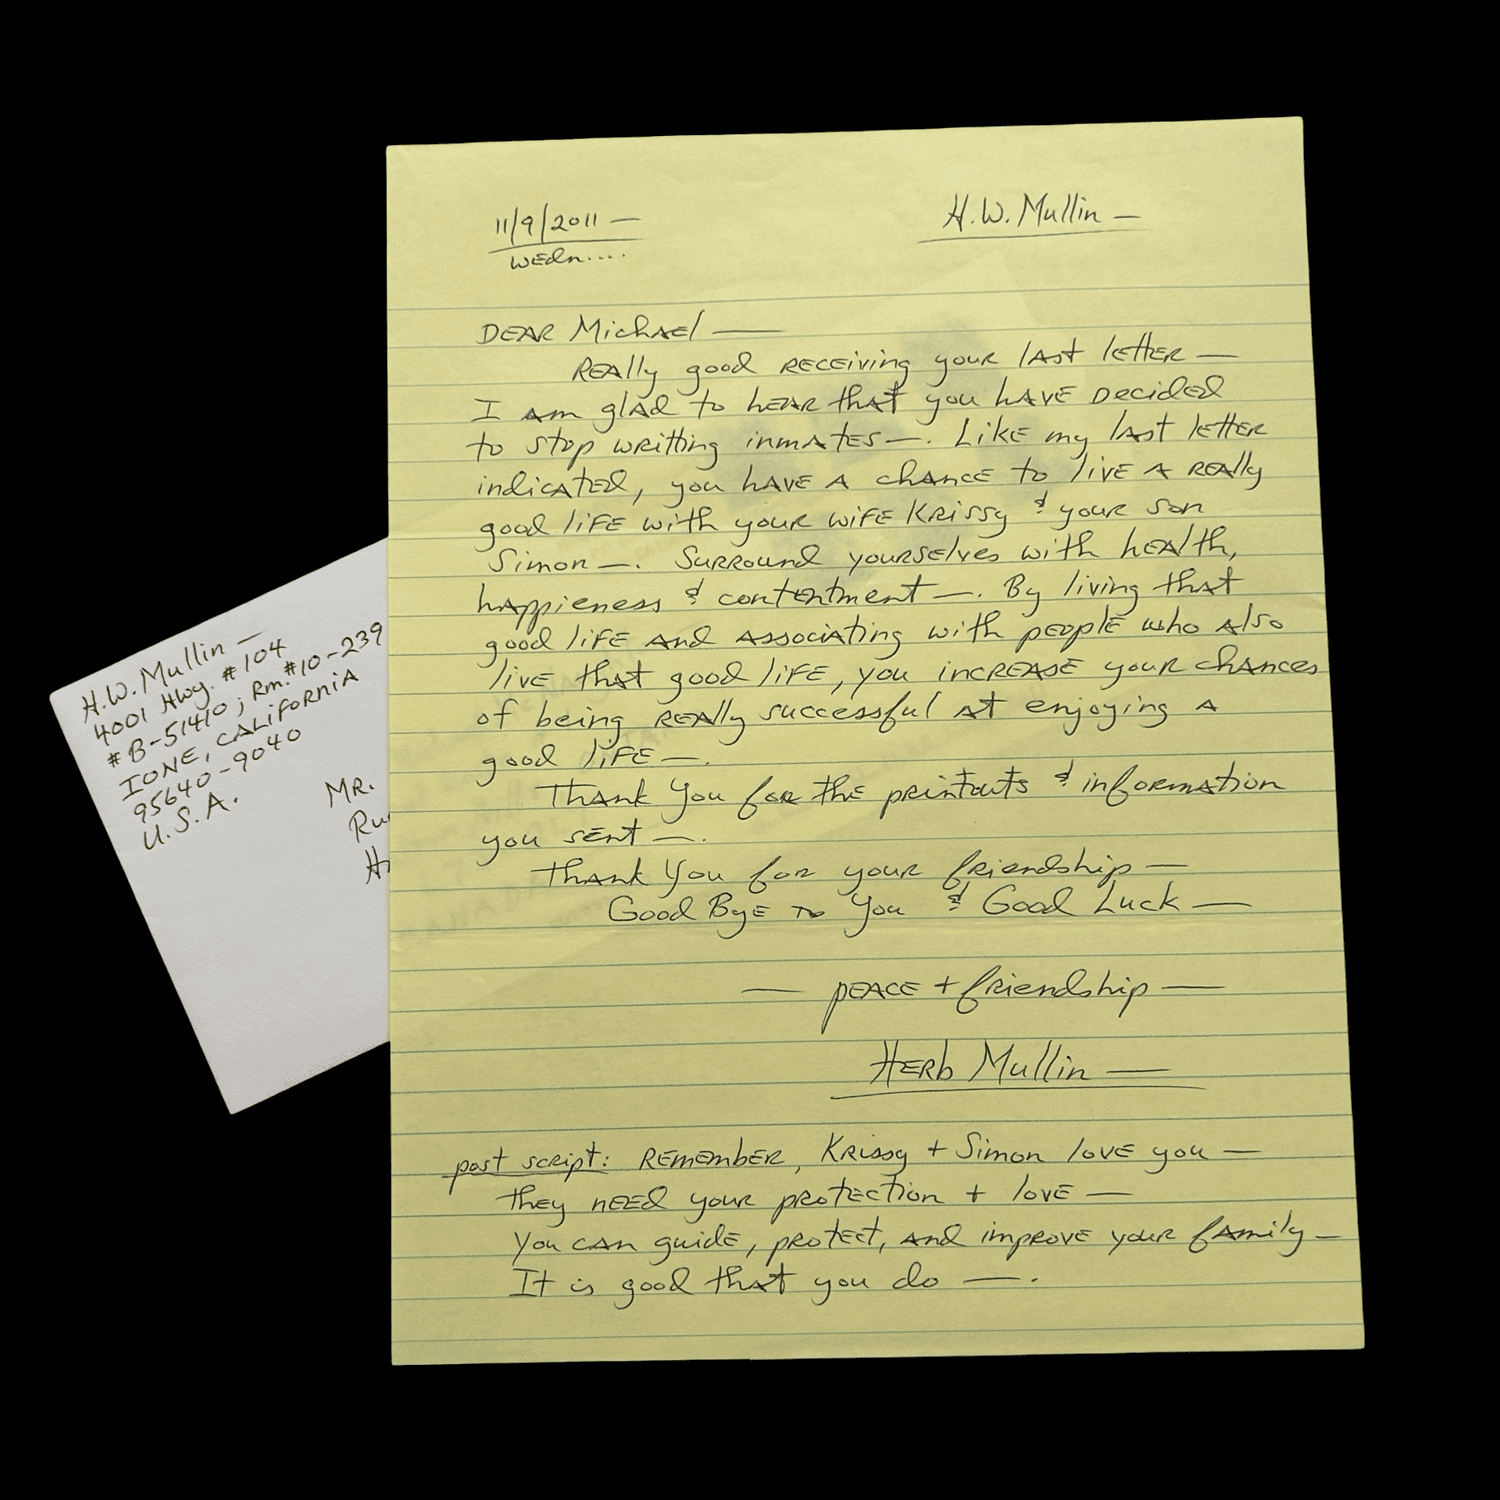 11/9/2011 —
WEDn....
H.W. Mullin —
DEAR Michael —
Really good receiving your last letter —
I am glad to hear that you have decided
to stop writting inmates —. Like my last letter
indicated, you have a chance to live a really
good life with your wife Krissy & your son
Simon —. Surround yourselves with health,
happieness & contentment —. By living that
good life and associating with people who also
live that good life, you increase your chances
of being really successful at enjoying a
good life —.
Thank You for the printouts & information
you sent —.
Thank You for your friendship —
Good Bye to You & Good Luck —
— peace + friendship —
Herb Mullin —
post script: Remember, Krissy + Simon love you —
They need your protection + love —
You can guide, protect, and improve your family —
It is good that you do —.
H.W. Mullin —
4001 Hwy. #104
#B-51410; Rm.#10-239
IONE, CALIFORNIA
95640-9040
U.S.A.
MR.